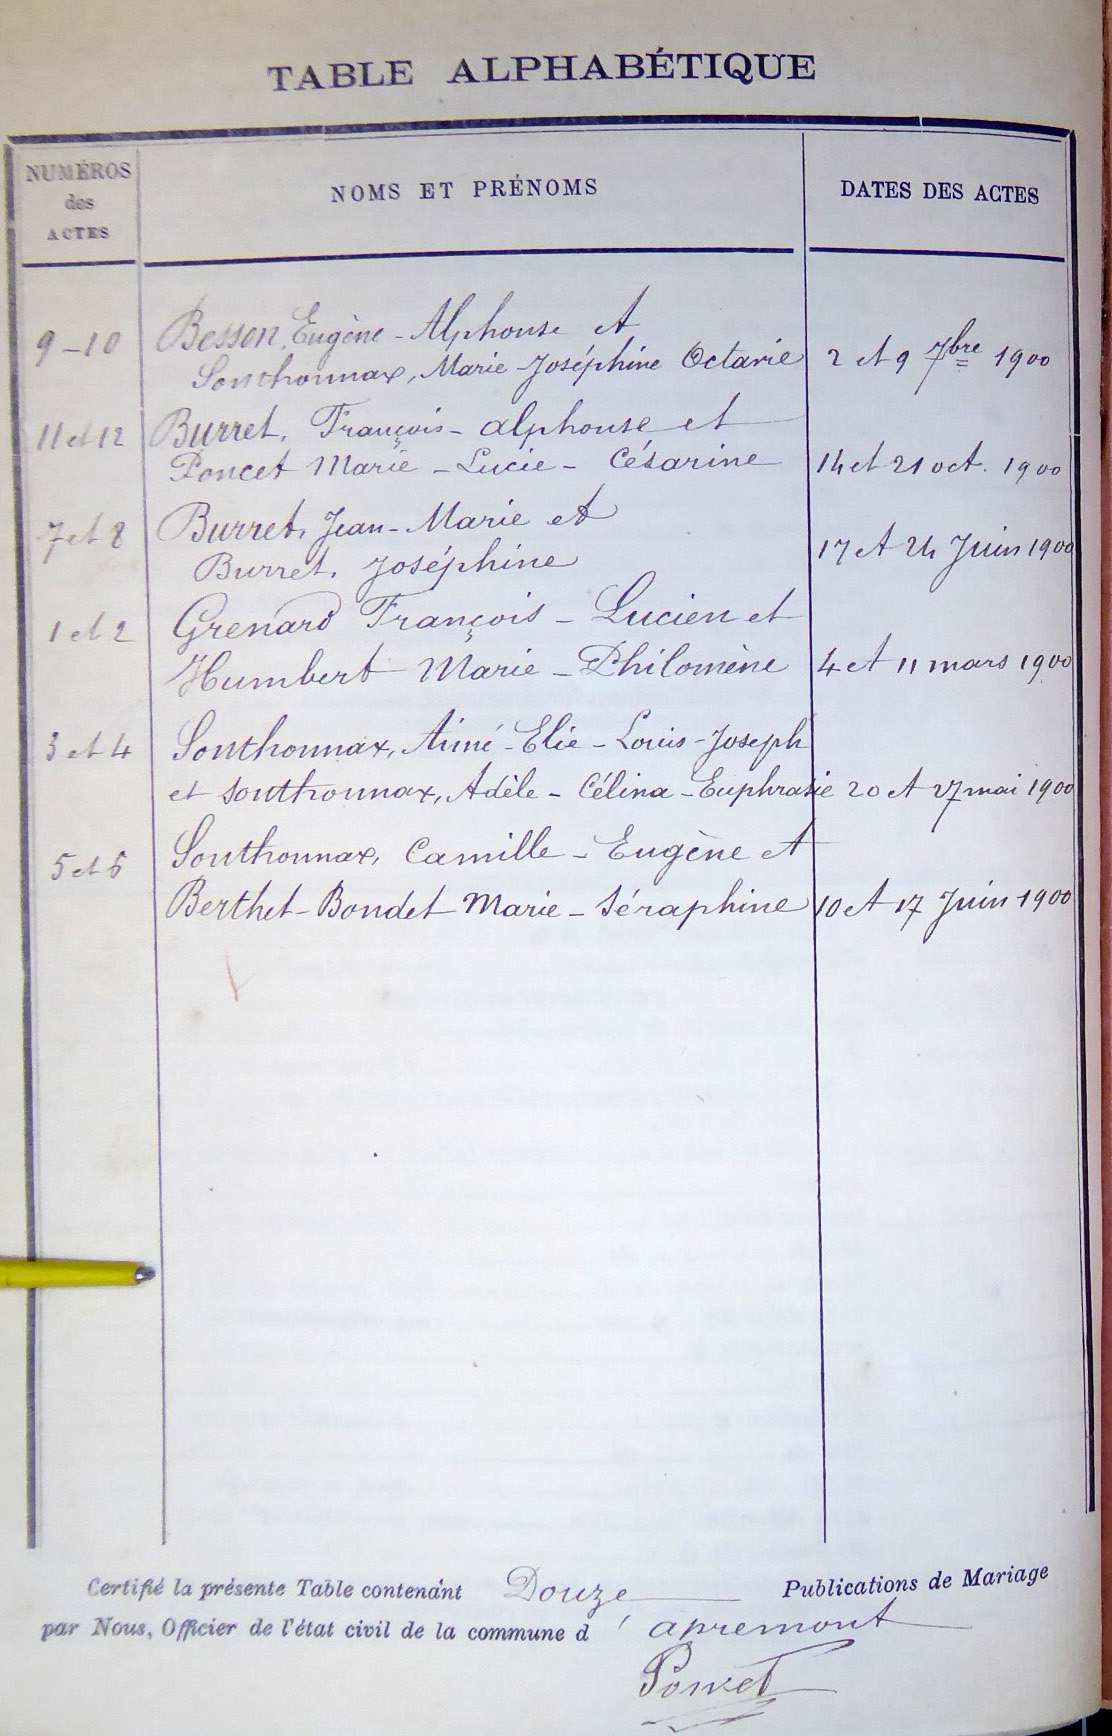 TABLE ALPHABÉTIQUE
NUMÉROS
des
ACTES
NOMS ET PRÉNOMS
DATES DES ACTES
9-10 Besson, Eugène - Alphonse et
Sonthonnax, Marie Joséphine Octavie 2 et 9 7bre 1900
11 et 12 Burret, François - alphonse et
Poncet Marie - Lucie - Césarine 14 et 21 oct. 1900
7 et 8 Burret, Jean - Marie et
Burret, Joséphine 17 et 24 Juin 1900
1 et 2 Grenard François - Lucien et
Humbert Marie - Philomène 4 et 11 mars 1900
3 et 4 Sonthonnax, Aimé - Elie - Louis - Joseph
et Sonthonnax, Adèle - Célina - Euphrasie 20 et 27 mai 1900
5 et 6 Sonthonnax, Camille - Eugène et
Berthet-Bondet Marie - Séraphine 10 et 17 Juin 1900
Certifié la présente Table contenant Douze Publications de Mariage
par Nous, Officier de l'état civil de la commune d'apremont
Poncet